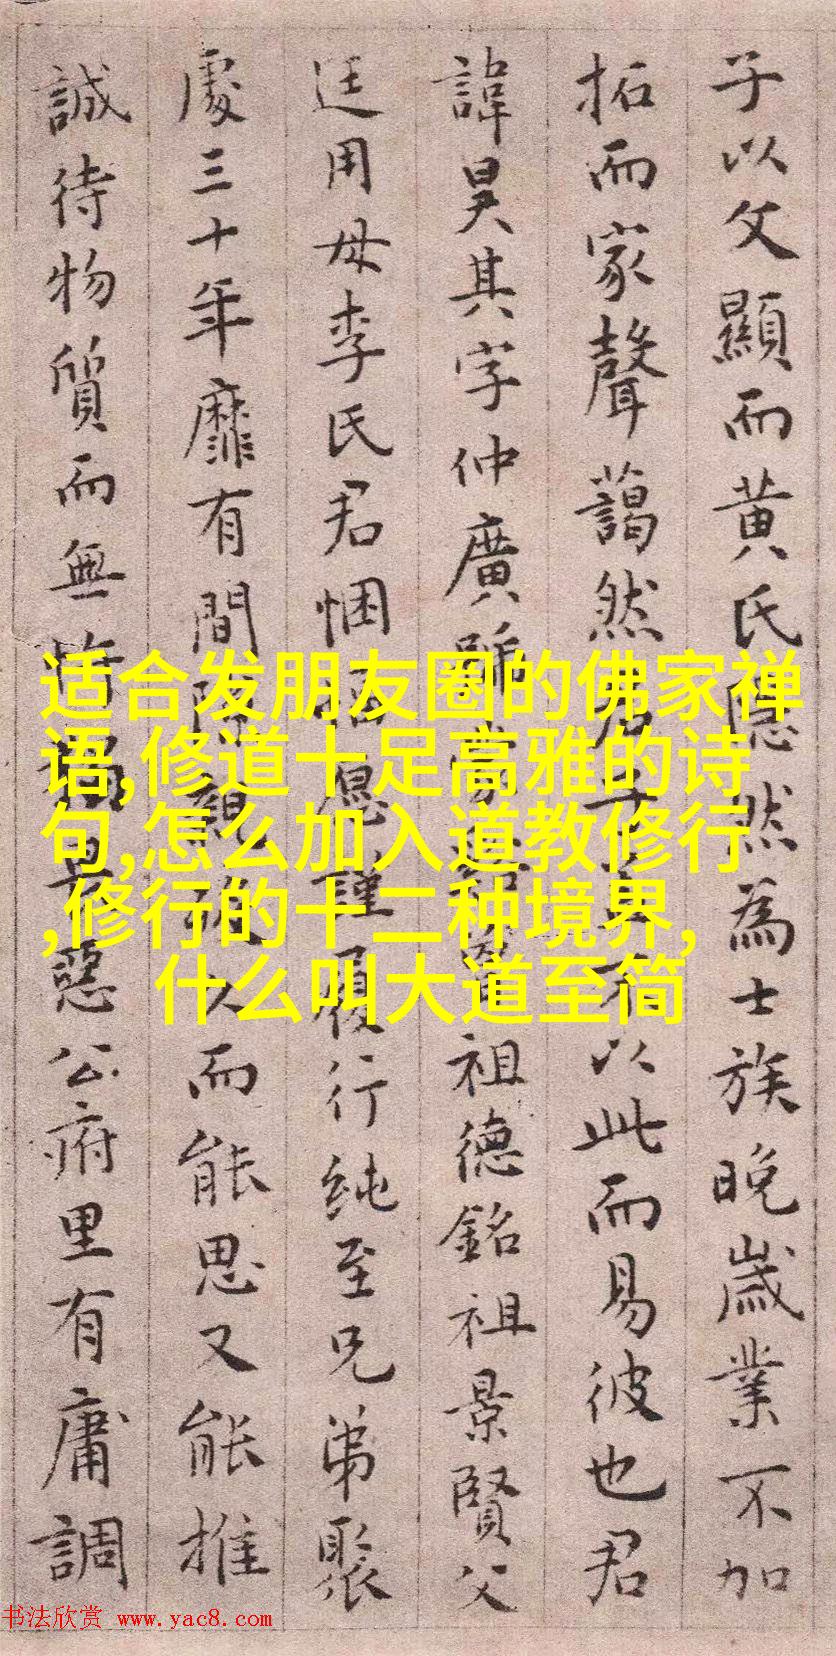 子以父顯而黄氏隠然為士族晚歲業不加
拓而家聲藹然君 不以此而易彼也君
諱昊其字仲廣號 祖德銘祖景賢父
廷用母李氏君悃愊愿謹履行純至兄弟聚
處三十年靡有間隙親 久而能思又能推
誠待物質而無 惡公府里有庸調
适合发朋友圈的佛家禅
语,修道十足高雅的诗
句,怎么加入道教修行
,修行的十二种境界,
什么叫大道至简
书法欣赏 www.yac8.com